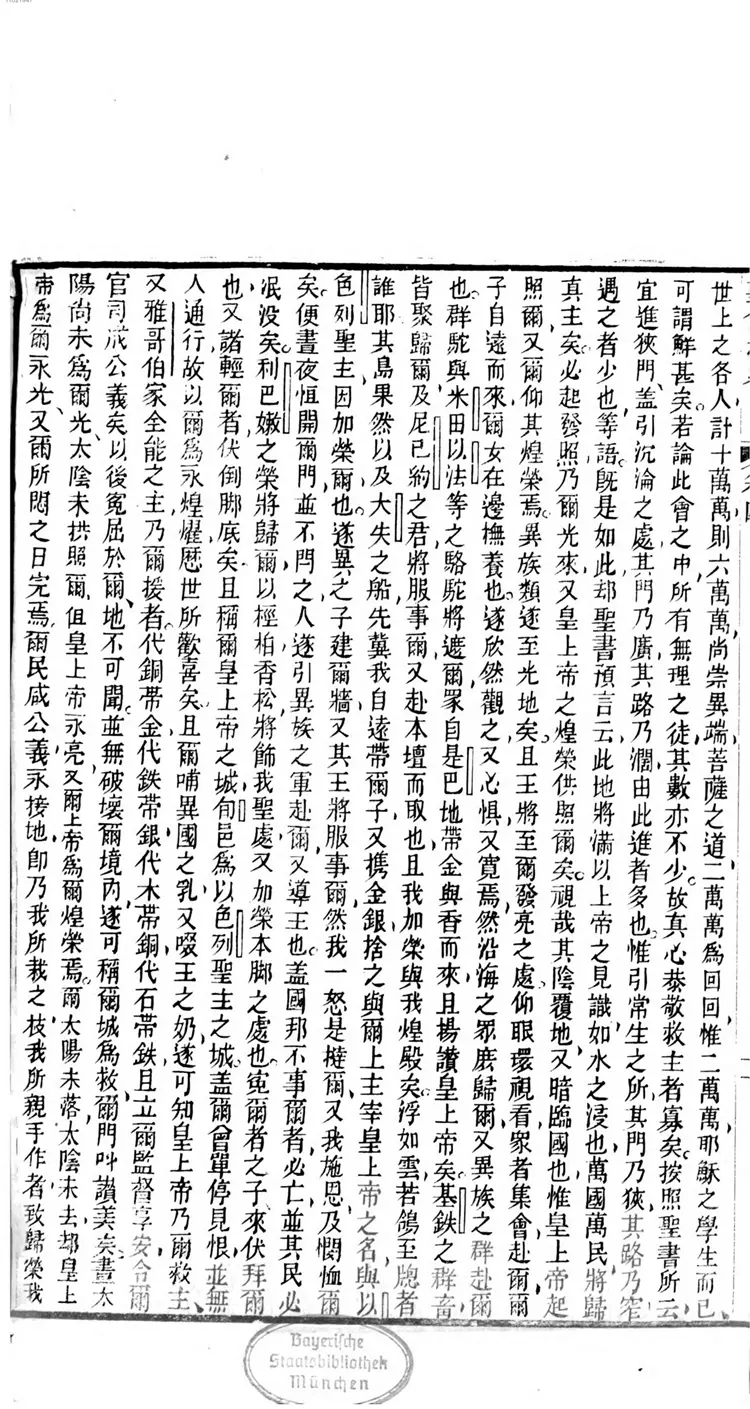 世上之各人計十萬萬則六萬萬尚崇異端菩薩之道二萬萬爲回回惟二萬萬耶穌之學生而已
可謂鮮甚矣若論此會之中所有無理之徒其數亦不少故真心恭敬救主者寡矣按照聖書所云
宜進狹門蓋引沉淪之處其門乃廣其路乃濶由此進者多也惟引常生之所其門乃狹其路乃窄
遇之者少也等語既是如此却聖書預言云此地將滿以上帝之見識如水之浸也萬國萬民將歸
真主矣必起發照乃爾光來又皇上帝之煌榮供照爾矣視哉其陰覆地又暗臨國也惟皇上帝起
照爾又爾仰其煌榮焉異族類遂至光地矣且王將至爾發亮之處仰眼環視看衆者集會赴爾爾
子自遠而來爾女在邊撫養也遂欣然觀之又心惧又寬焉然沿海之眾庶歸爾又異族之群赴爾
也群駝與米田以法等之駱駝將遮爾眾自是巴地帶金與香而來且揚讚皇上帝矣基鉄之群畜
皆聚歸爾及尼己約之君將服事爾又赴本壇而取也且我加榮與我煌殿矣浮如雲若鴿至牕者
誰耶其島果然以及大失之船先冀我自遠帶爾子又携金銀捨之與爾上主宰皇上帝之名與以
色列聖主因加榮爾也遂異之子建爾牆又其王將服事爾然我一怒是撻爾又我施恩及憫恤爾
矣便晝夜恒開爾門並不閂之人遂引異族之軍赴爾又導王也蓋國邦不事爾者必亡並其民必
泯没矣利巴嫩之榮將歸爾以桱柏香松將飾我聖處又加榮本脚之處也寃爾者之子來伏拜爾
也又諸輕爾者伏倒脚底矣且稱爾皇上帝之城旬邑爲以色列聖主之城蓋爾曾單停見恨並無
人通行故以爾爲永煌燿歷世所歡喜矣且爾哺異國之乳又啜王之奶遂可知皇上帝乃爾救主
又雅哥伯家全能之主乃爾援者代銅帶金代鉄帶銀代木帶銅代石帶鉄且立爾監督享安令爾
官司成公義矣以後寃屈於爾地不可聞並無破壞爾境內遂可稱爾城爲救爾門叫讚美矣晝太
陽尚未爲爾光太陰未拱照爾但皇上帝永亮又爾上帝爲爾煌榮焉爾太陽未落太陰未去却皇上
帝爲爾永光又爾所悶之日完焉爾民咸公義永接地卽乃我所栽之枝我所親手作者致歸榮我
Bayerische
Staatsbibliothek
München